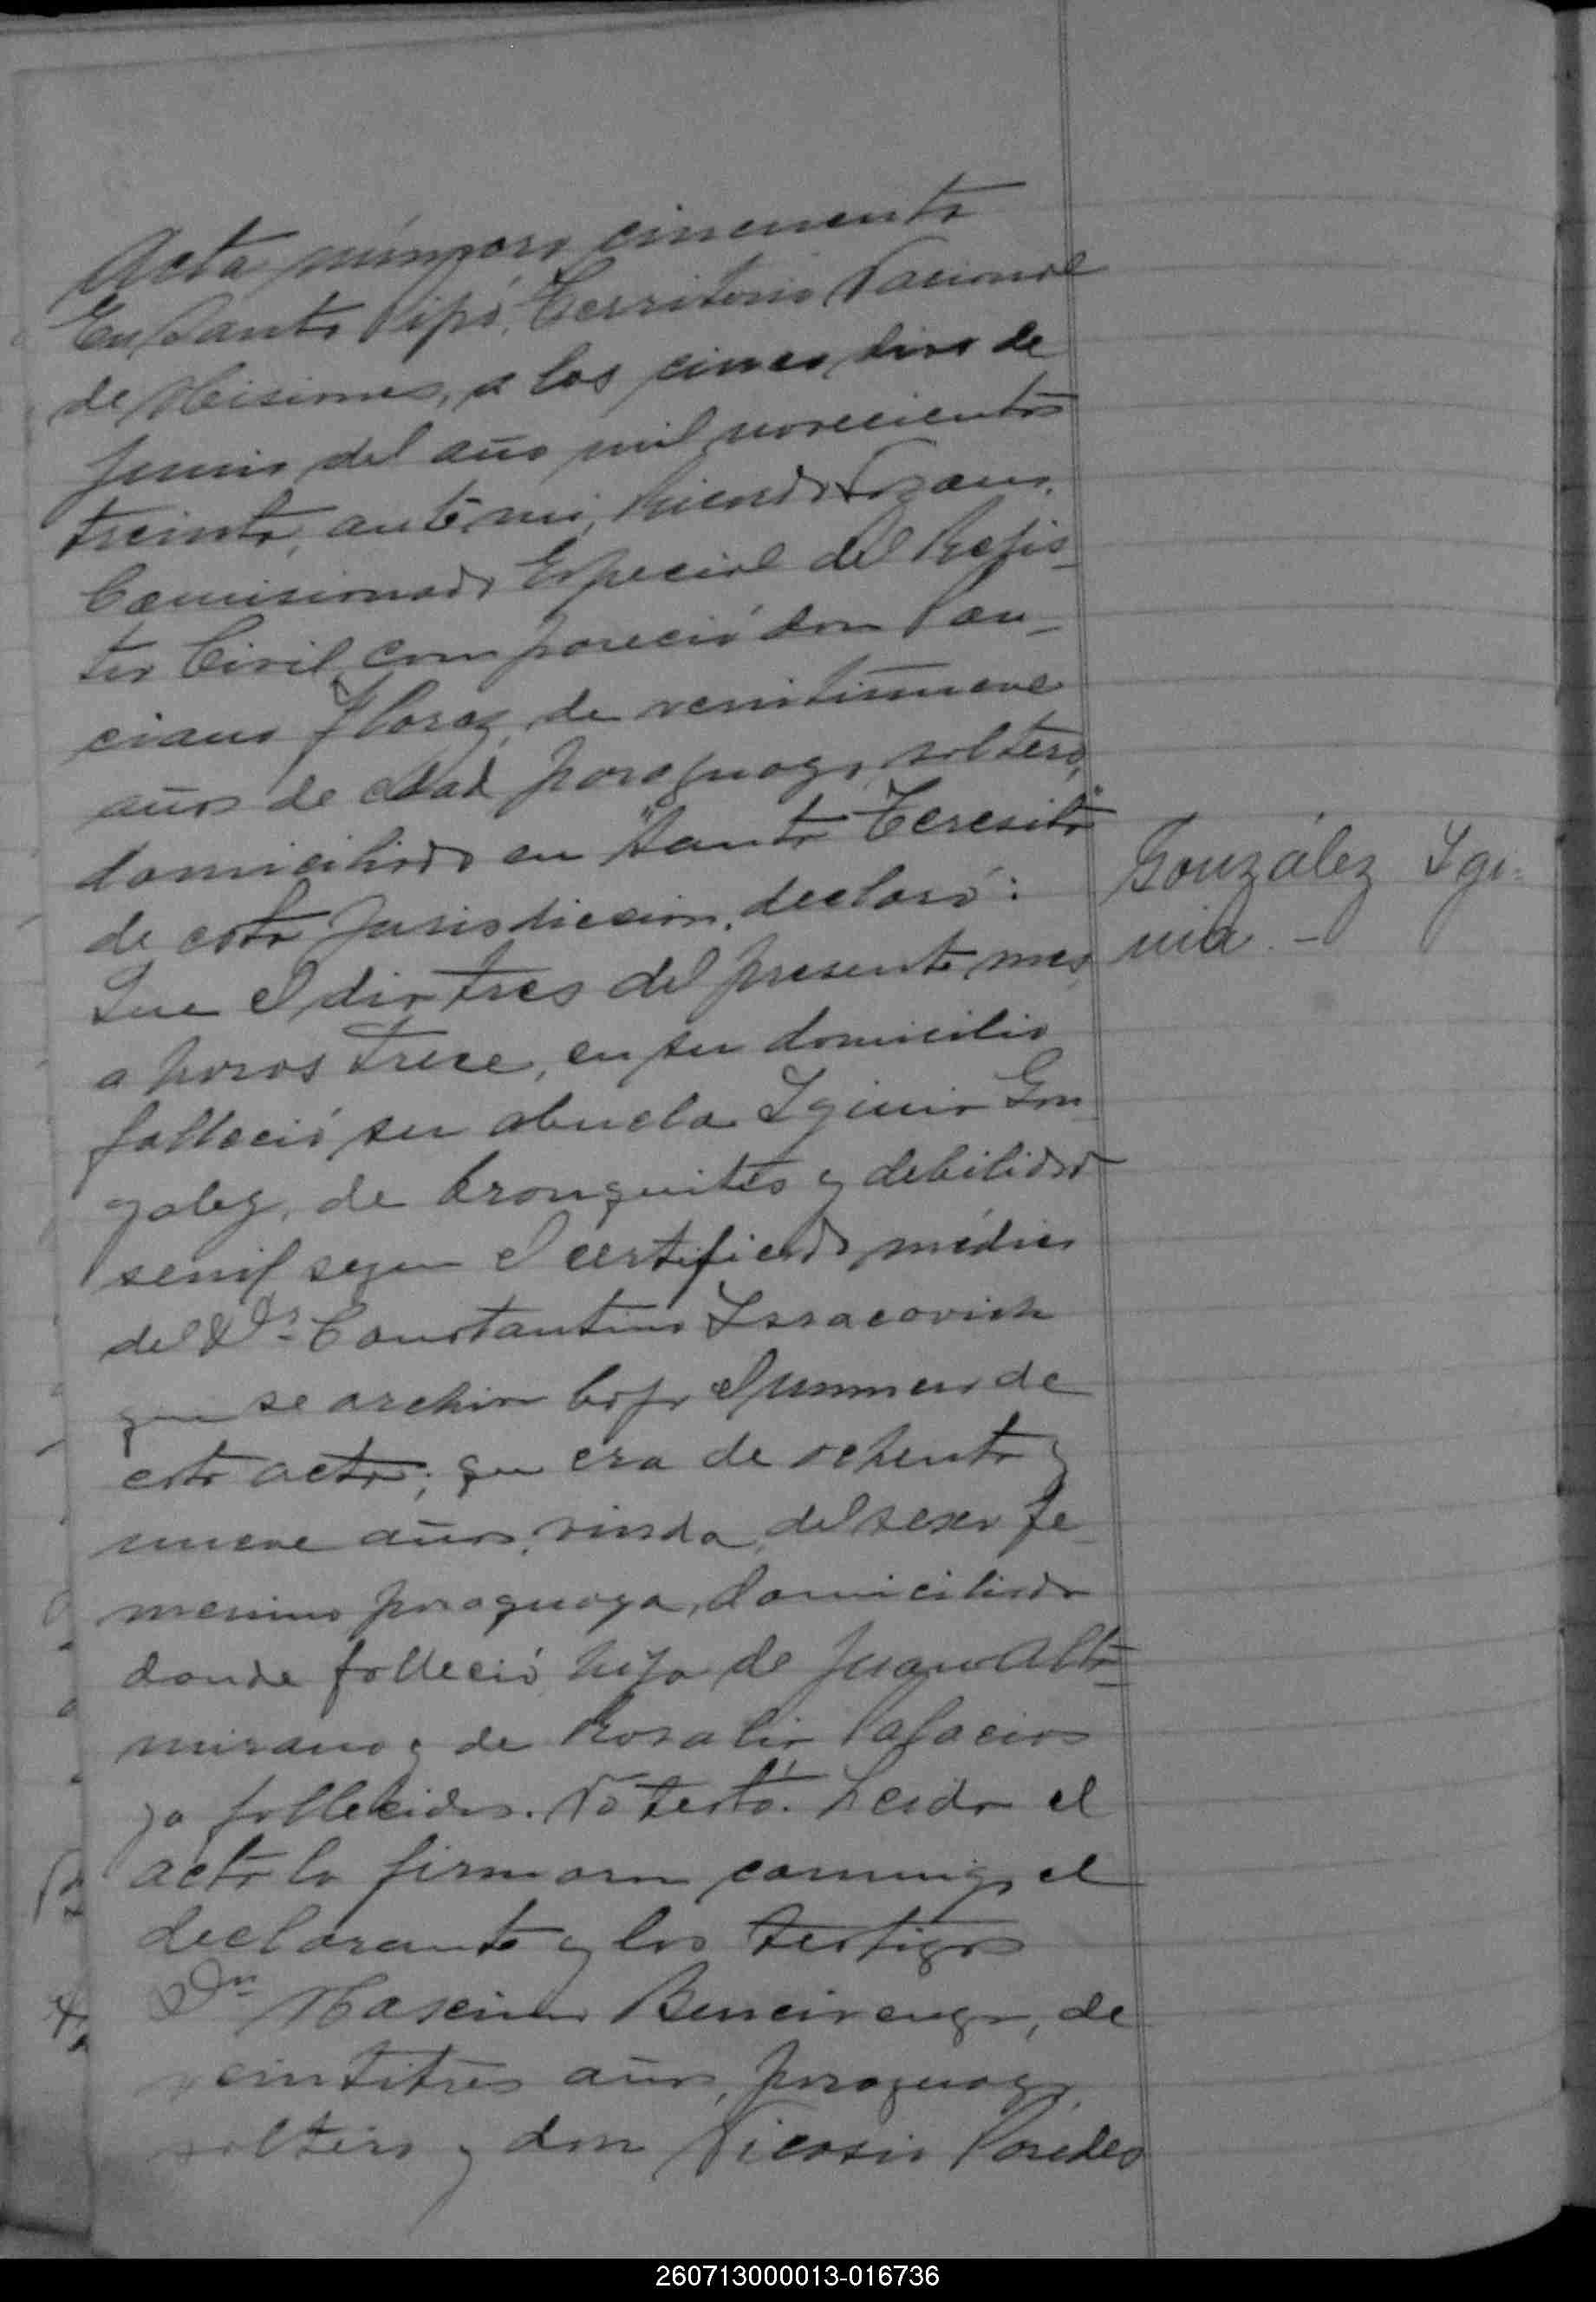 Acta número cincuenta
En Santo Pipó, Territorio Nacional
de Misiones, a los cinco dias de
Junio del año mil novecientos
treinta, ante mi, Ricardo Lozano,
Comisionado Especial del Regis-
tro Civil, compareció don Pon-
ciano Florez, de veintinueve
años de edad, paraguayo, soltero,
domiciliado en "Santa Teresita"
de esta Jurisdiccion, declaró:
Que el dia tres del presente mes,
a horas trece, en su domicilio
falleció su abuela Iginia Gon-
zalez, de bronquitis y debilidad
senil segun el certificado médico
del Dr. Constantino Issacovich
que se archiva bajo el numero de
esta acta; que era de ochenta y
nueve años, viuda, del sexo fe-
menino paraguaya, domiciliada
donde falleció, hija de Juan Alta-
mirano y de Rosalia Palacios
ya fallecidos. No testó. Leida el
acta la firmaron conmigo el
declarante y los testigos
Dn. Maximo Bencivenga, de
veintitres años, paraguayo,
soltero y don Nicasio Paredes
González Igi-
nia. -
260713000013-016736